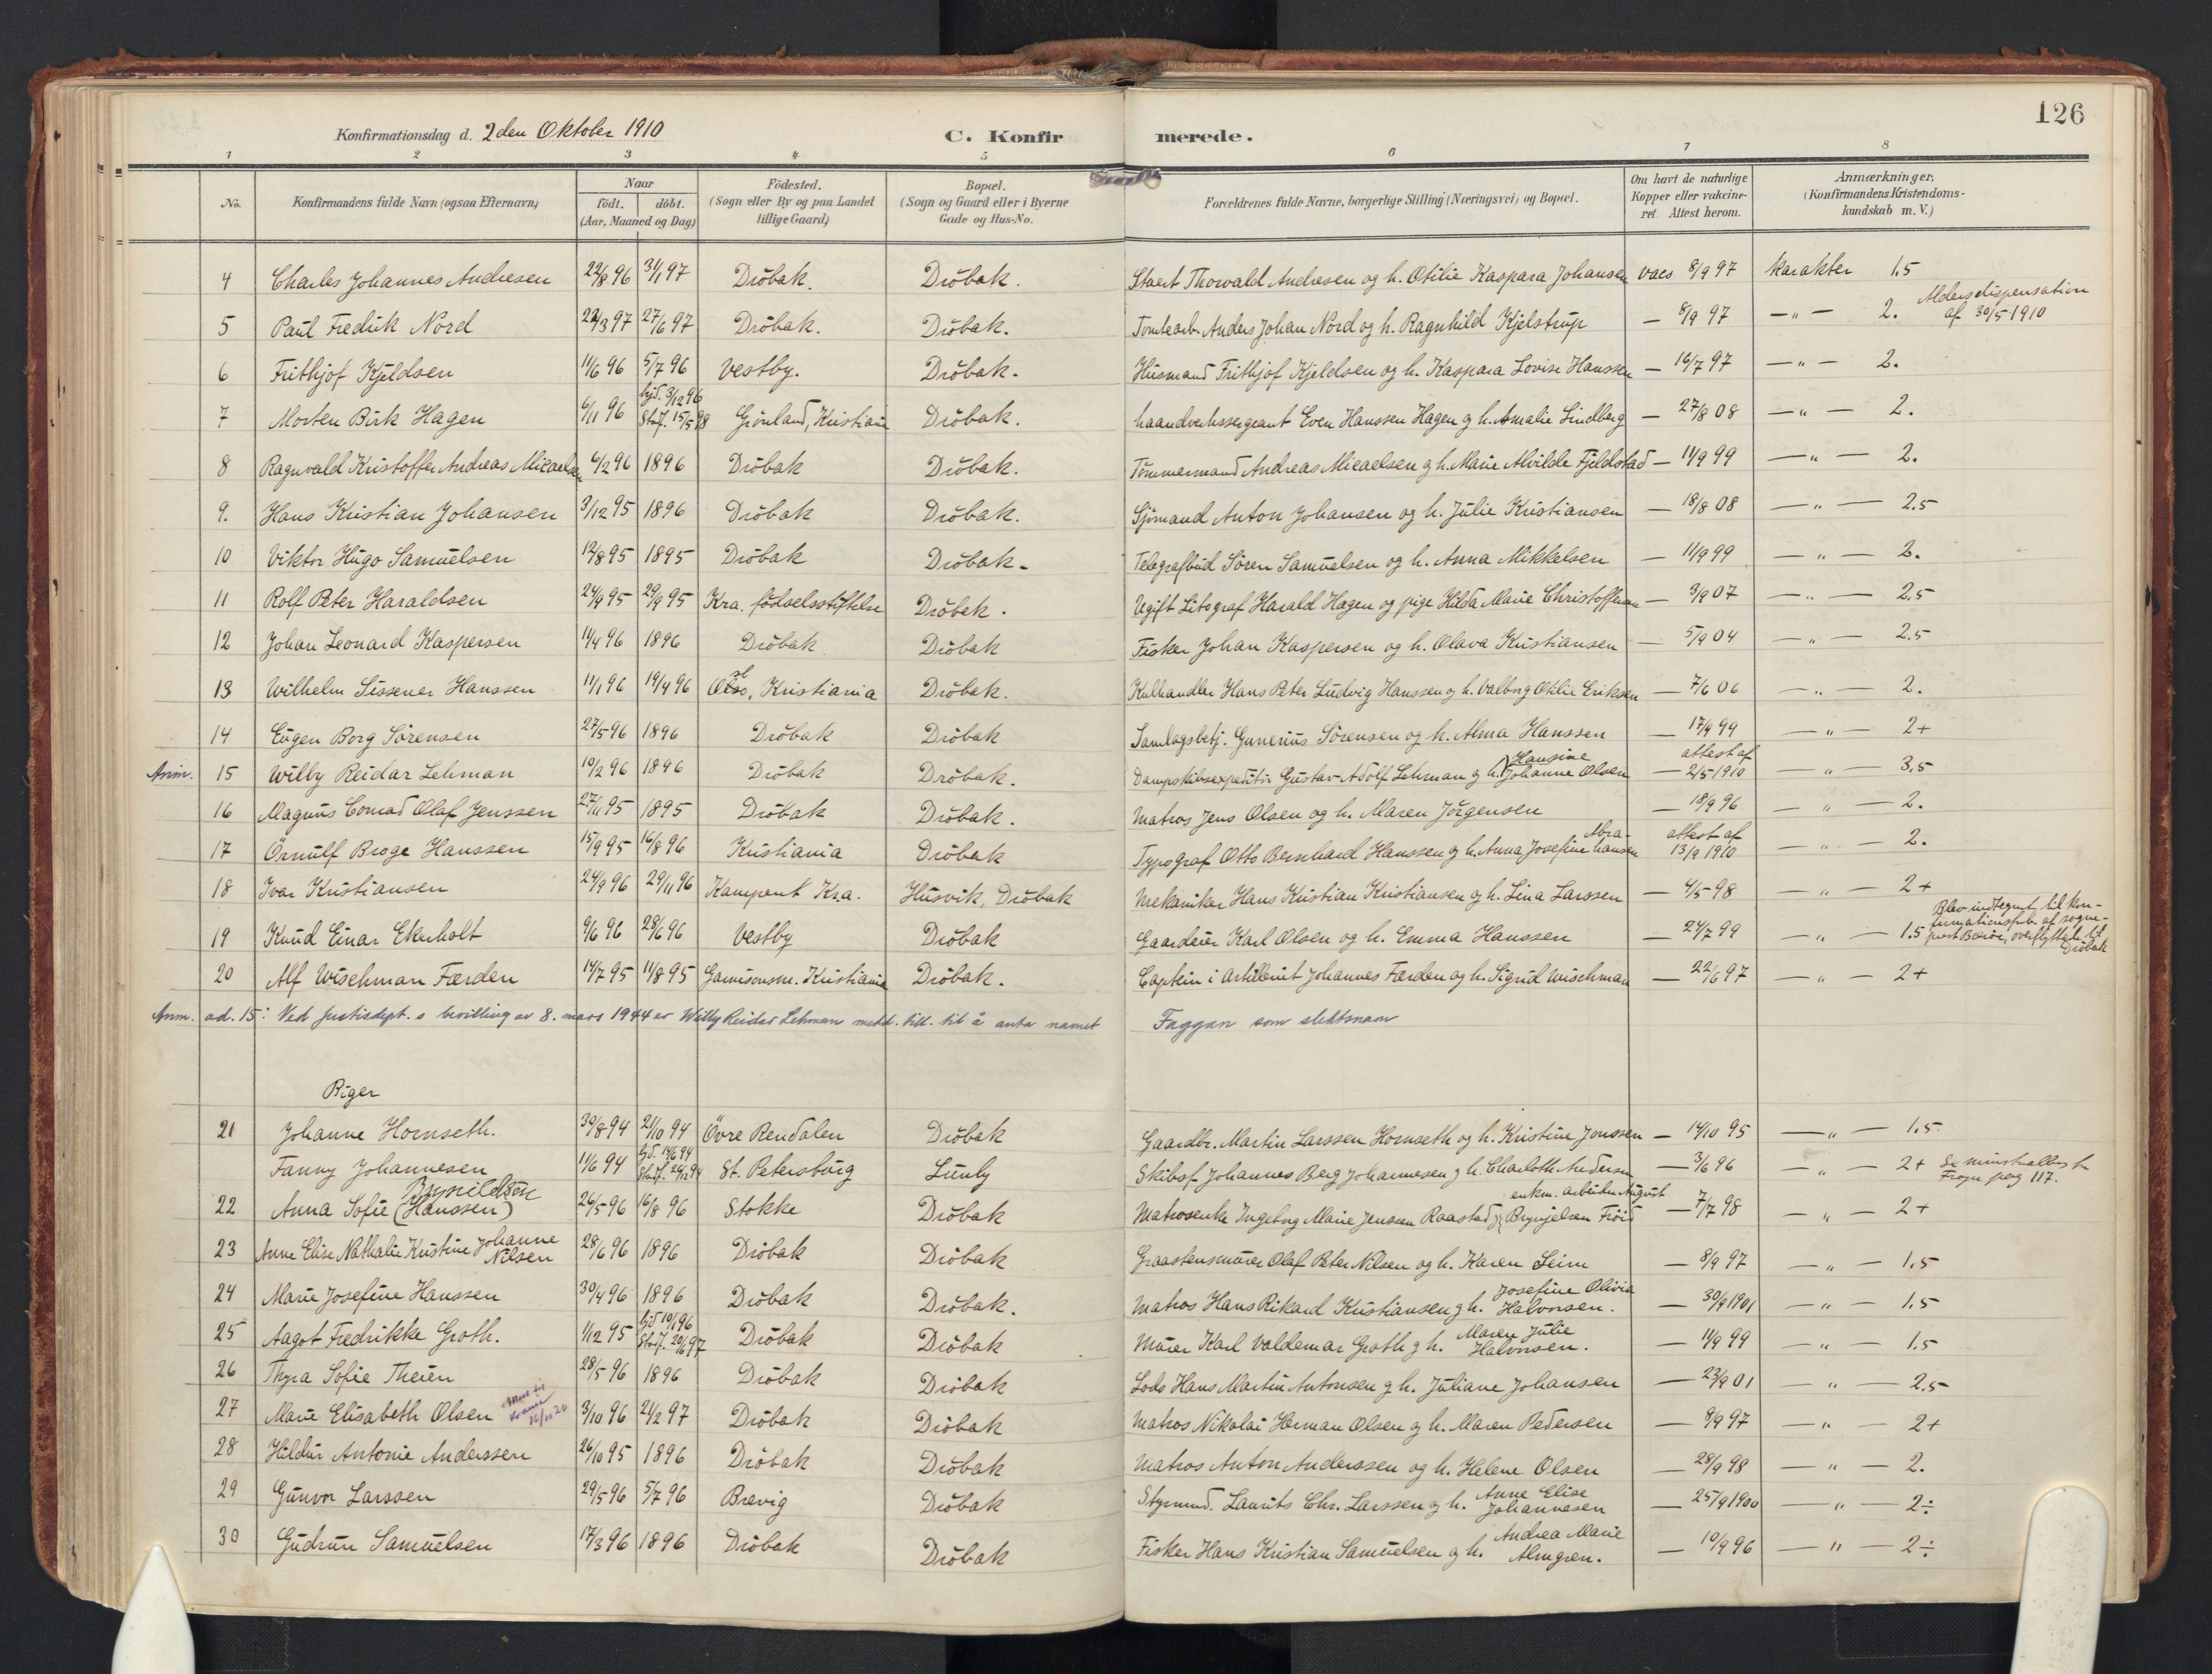 126
Konfirmationsdag d. 2den Oktober 1910 C. Konfirmerede.
1 2 3 4 5 6 7 8
No. Konfirmandens fulde Navn (ogsaa Efternavn) Naar födt. döbt. (Aar, Maaned og Dag) Födested. (Sogn eller By og paa Landet tillige Gaard) Bopæl. (Sogn og Gaard eller i Byerne Gade og Hus-No. Forældrenes fulde Navne, borgerlige Stilling (Næringsvei) og Bopæl. Om havt de naturlige Kopper eller vakcineret. Attest herom. Anmærkninger. (Konfirmandens Kristendomskundskab m. V.)
4 Charles Johannes Andresen 22/8 96 31/1 97 Dröbak. Dröbak. Thorvald Andresen og h. Otilie Kaspara Johansen vacs 8/9 97 Karakter 1.5
5 Paul Fredrik Nord 22/3 97 27/6 97 Dröbak. Dröbak. Tomtearb. Anders Johan Nord og h. Ragnhild Kjelstrup — 8/9 97 —„— 2. Aldersdispensation af 30/5 1910
6 Frithjof Kjeldsen 11/6 96 5/7 96 Vestby. Dröbak. Husmand Frithjof Kjeldsen og h. Kaspara Lovise Hanssen — 16/7 97 —„— 2.
7 Morten Birk Hagen 6/11 96 hjd. 3/12 96 Stadf. 15/5 98 Grönland, Kristiania Dröbak. Haandverkssergeant Even Hanssen Hagen og h. Amalie Lindberg — 27/8 08 —„— 2.
8 Ragnvald Kristoffer Andreas Micaelsen 6/2 96 1896 Dröbak Dröbak. Tömmermand Andreas Micaelsen og h. Marie Alvilde Fjeldstad — 11/9 99 —„— 2.
9. Hans Kristian Johansen 3/12 95 1896 Dröbak Dröbak. Sjömand Anton Johansen og h. Julie Kristiansen — 18/8 08 —„— 2.5
10 Viktor Hugo Samuelsen 12/8 95 1895 Dröbak Dröbak. Telegrafbud Sören Samuelsen og h. Anna Mikkelsen — 11/9 99 —„— 2.
11 Rolf Peter Haraldsen 24/9 95 29/9 95 Kra. födselsstiftelse Dröbak. Ugift Litograf Harald Hagen og pige Hilda Marie Christoffersen — 3/9 07 —„— 2.5
12 Johan Leonard Kaspersen 14/4 96 1896 Dröbak Dröbak Fisker Johan Kaspersen og h. Olava Kristiansen — 5/9 04 —„— 2.5
13 Wilhelm Sissener Hanssen 11/1 96 19/4 96 Oslo, Kristiania Dröbak. Kulhandler Hans Peter Ludvig Hanssen og h. Valborg Otilie Eriksen — 7/6 06 —„— 2.
14 Eugen Borg Sörensen 27/5 96 1896 Dröbak Dröbak Samlagsbetj. Gunerius Sörensen og h. Alma Hanssen — 17/9 99 —„— 2+
Anm. 15 Willy Reidar Lehman 10/2 96 1896 Dröbak Dröbak. Dampskibsexpeditör Gustav Adolf Lehman og h. Hansine Johanne Olsen attest af — 2/5 1910 —„— 3.5
16 Magnus Conrad Olaf Jenssen 27/11 95 1895 Dröbak Dröbak. Matros Jens Olsen og h. Maren Jörgensen — 18/9 96 —„— 2.
17 Örnulf Broge Hanssen 15/9 95 16/8 96 Kristiania Dröbak Typograf Otto Bernhard Hanssen og h. Anna Josefine Abrahamsen attest af 13/9 1910 —„— 2.
18 Ivar Kristiansen 24/9 96 29/11 96 Kampens Kra. Husvik, Dröbak Mekaniker Hans Kristian Kristiansen og h. Lina Larssen — 4/5 98 —„— 2+
19 Knud Einar Ekerholt 9/6 96 28/6 96 Vestby Dröbak Gaardeier Karl Olsen og h. Emma Hanssen — 24/7 99 —„— 1.5 Blev indtegnet til konfirmationsforb. af sogneprest Börös, overflyttede til Dröbak
20 Alf Wischman Færden 14/7 95 11/8 95 Garnisonsm. Kristiania Dröbak. Captein i artilleriet Johannes Færden og h. Sigrid Wischman — 22/6 97 —„— 2+
Anm. ad. 15: Ved Justisdept.s bevilling av 8. mars 1944 er Willy Reidar Lehman medd. till. til å anta namet Faggan som slektsnavn
Piger
21 Johanne Hornseth. 30/8 94 21/10 94 Övre Rendalen Dröbak Gaardbr. Martin Larssen Hornseth og h. Kristine Jonssen — 14/10 95 —„— 1.5
Fanny Johannesen 11/6 94 hjd. 14/6 94 Stadf. 26/12 94 St. Petersburg Lunby Skibsf. Johannes Berg Johannesen og h. Charlotte Andersen — 3/6 96 —„— 2+ Se minstealbest Frogn pag 117.
22 Anna Sofie (Hanssen) Brynildsen 26/5 96 16/8 96 Stokke Dröbak Matrosenke Ingeborg Marie Jenssen Raastad og enkm. arbeider August Brynjelsen Fröid — 7/7 98 —„— 2+
23 Anne Elise Nathalie Kristine Johanne Nilsen 28/6 96 1896 Dröbak Dröbak Graastensmurer Olaf Peter Nilsen og h. Karen Seim — 8/9 97 —„— 1.5
24 Marie Josefine Hanssen 30/4 96 1896 Dröbak Dröbak. Matros Hans Rikard Kristiansen og h. Josefine Olivia Halvorsen. — 30/9 1901 —„— 1.5
25 Aagot Fredrikke Groth. 1/12 95 hjd 10/1 96 Stadf. 20/6 97 Dröbak Dröbak Murer Karl Valdemar Groth og h. Maren Julie Halvorsen. — 11/9 99 —„— 1.5
26 Thyra Sofie Theien 28/5 96 1896 Dröbak Dröbak Lods Hans Martin Antonsen og h. Juliane Johansen — 23/9 01 —„— 2.5
27 Marie Elisabeth Olsen Attest til Krania 16/11 26 3/10 96 21/2 97 Dröbak Dröbak Matros Nikolai Herman Olsen og h. Maren Pedersen — 8/9 97 —„— 2+
28 Hildur Antonie Anderssen 26/10 95 1896 Dröbak Dröbak Matros Anton Anderssen og h. Helene Olsen — 28/9 98 —„— 2.
29 Gunvor Larssen 29/5 96 5/7 96 Brevig Dröbak Styrmnd. Laurits Chr. Larssen og h. Anne Elise Johannesen — 25/9 1900 —„— 2÷
30 Gudrun Samuelsen 17/3 96 1896 Dröbak Dröbak Fisker Hans Kristian Samuelsen og h. Andrea Marie Almgren. — 10/9 96 —„— 2÷